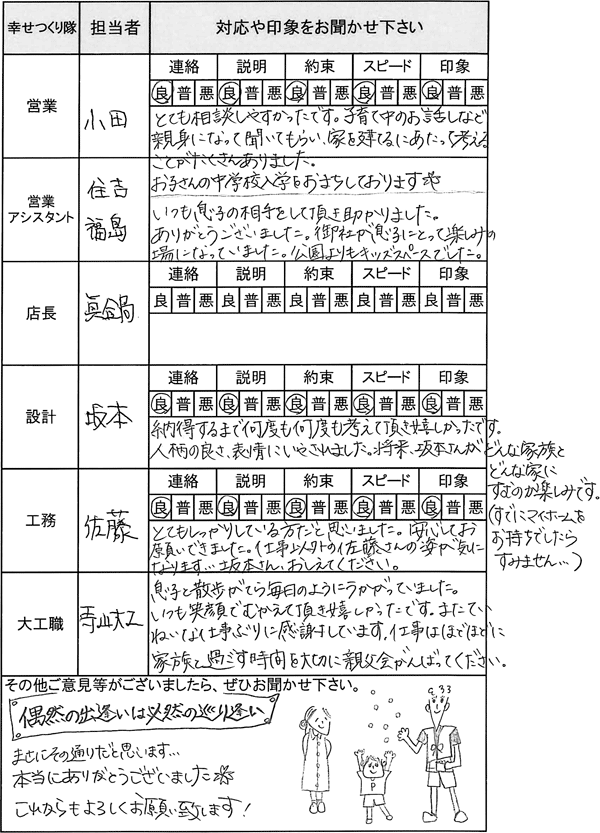 幸せつくり隊 担当者 対応や印象をお聞かせ下さい
営業 小田
連絡 説明 約束 スピード 印象
良 普 悪 良 普 悪 良 普 悪 良 普 悪 良 普 悪
とても相談しやすかったです。子育て中のお話しなど
親身になって聞いてもらい、家を建てるにあたって考える
ことがたくさんありました。
営業アシスタント 住吉 福島
お子さんの中学校入学をおまちしております
いつも息子の相手をして頂き助かりました。
ありがとうございました。御社が息子にとって楽しみの
場になっていました。公園よりもキッズスペースでした。
店長 眞鍋
連絡 説明 約束 スピード 印象
良 普 悪 良 普 悪 良 普 悪 良 普 悪 良 普 悪
設計 坂本
連絡 説明 約束 スピード 印象
良 普 悪 良 普 悪 良 普 悪 良 普 悪 良 普 悪
納得するまで何度も何度も考えて頂き嬉しかったです。
人柄の良さ、表情にいやされました。将来、坂本さんがどんな家族と
どんな家に
すむのか楽しみです。
(すでにマイホームを
お持ちでしたら
すみません…)
工務 佐藤
連絡 説明 約束 スピード 印象
良 普 悪 良 普 悪 良 普 悪 良 普 悪 良 普 悪
とてもしっかりしている方だと思いました。安心してお
願いできました。仕事以外の佐藤さんの姿が気に
なります…坂本さん、おしえてください。
大工職 寺山大工
息子と散歩がてら毎日のようにうかがっていました。
いつも笑顔でむかえて頂き嬉しかったです。またてい
ねいな仕事ぶりに感謝しています。仕事はほどほどに
家族と過ごす時間を大切に親父会がんばってください。
その他ご意見等がございましたら、ぜひお聞かせ下さい。
偶然の出逢いは必然の巡り逢い
まさにその通りだと思います…
本当にありがとうございました
これからもよろしくお願い致します!
P